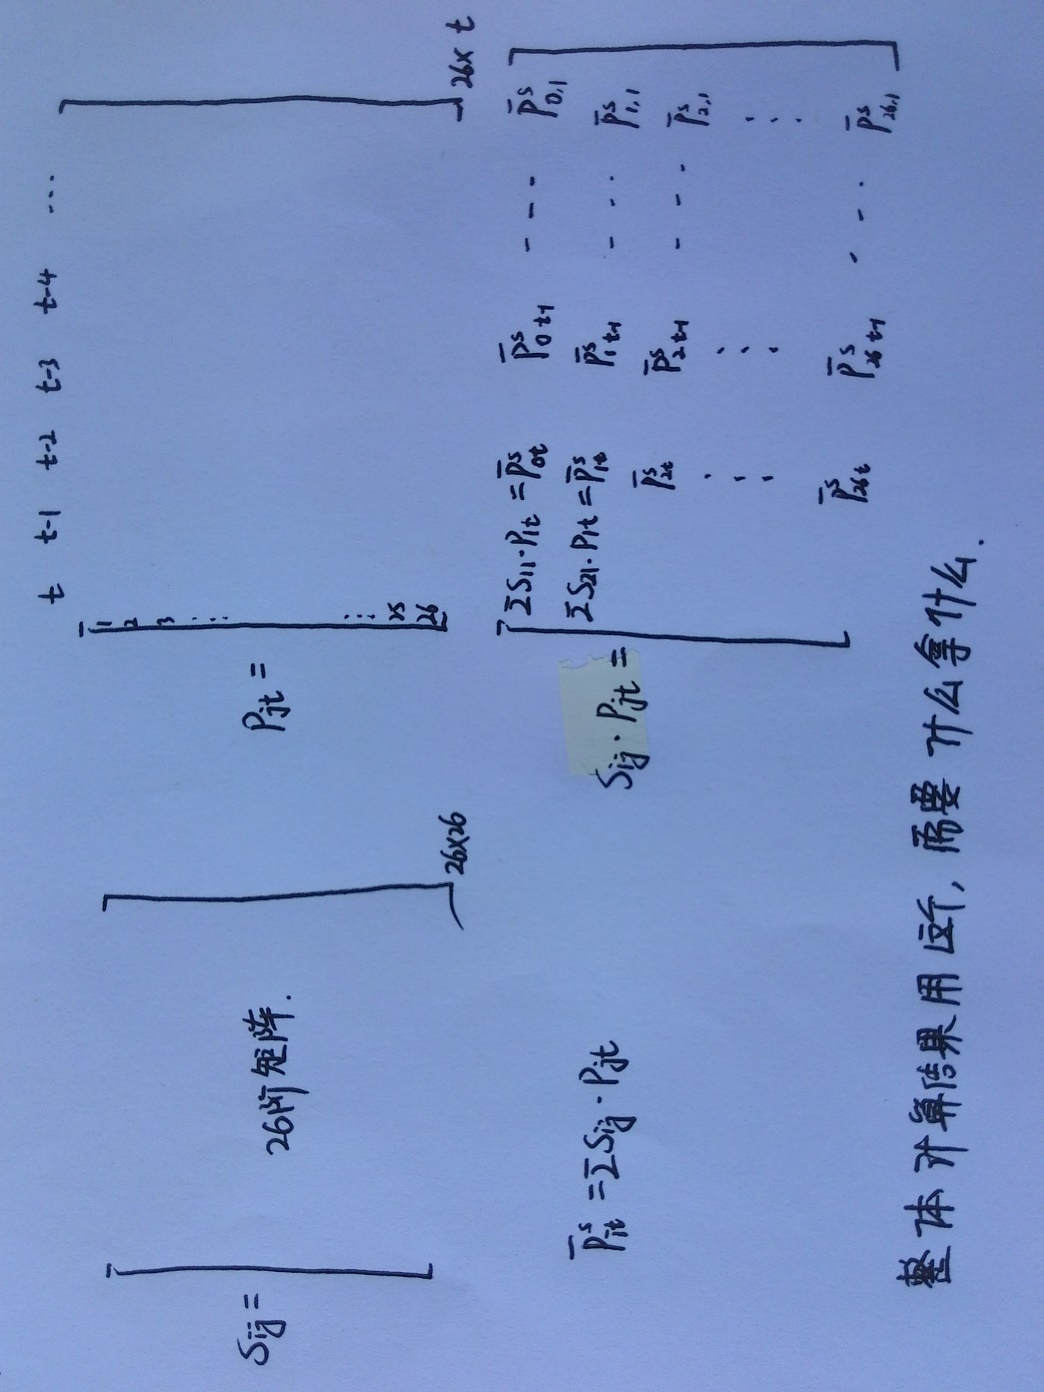 t t-1 t-2 t-3 t-4 ...
Sij = [ 26阶矩阵. ] 26×26
Pjt = [ 1 2 3 ⋮ ⋮ 25 26 ] 26× t
P̄ˢit = ΣSij · Pjt
Sij · Pjt =
ΣS11·P1t = P̄ˢ0t P̄ˢ0 t-1 - - - P̄ˢ0,1
ΣS21·P1t = P̄ˢ1t P̄ˢ1 t-1 - - - P̄ˢ1,1
P̄ˢ2t P̄ˢ2 t-1 - - - P̄ˢ2,1
⋮ ⋮ ⋮
P̄ˢ26t P̄ˢ26 t-1 - - - P̄ˢ26,1
整体计算结果用这个, 需要什么拿什么.